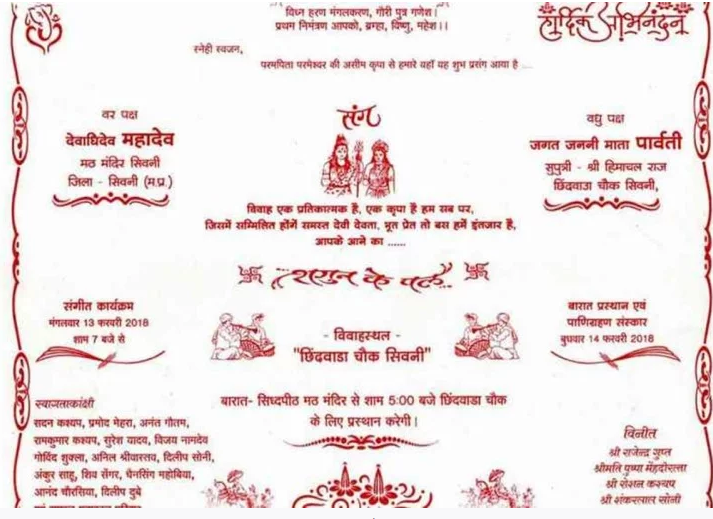 विघ्न हरण मंगलकरण, गौरी पुत्र गणेश।
प्रथम निमंत्रण आपको, ब्रम्हा, विष्णु, महेश।।
हार्दिक अभिनंदन
स्नेही स्वजन,
परमपिता परमेश्वर की असीम कृपा से हमारे यहाँ यह शुभ प्रसंग आया है
वर पक्ष
देवाधिदेव महादेव
मठ मंदिर सिवनी
जिला - सिवनी (म.प्र.)
संग
वधु पक्ष
जगत जननी माता पार्वती
सुपुत्री - श्री हिमाचल राज
छिंदवाडा चौक सिवनी,
विवाह एक प्रतिकात्मक है, एक कृपा है हम सब पर,
जिसमें सम्मिलित होंगें समस्त देवी देवता, भूत प्रेत तो बस हमें इंतजार है,
आपके आने का ......
शगुन के पल...
संगीत कार्यक्रम
मंगलवार 13 फरवरी 2018
शाम 7 बजे से
- विवाहस्थल -
"छिंदवाडा चौक सिवनी"
बारात प्रस्थान एवं
पाणिग्रहण संस्कार
बुधवार 14 फरवरी 2018
बारात- सिध्दपीठ मठ मंदिर से शाम 5:00 बजे छिंदवाडा चौक
के लिए प्रस्थान करेगी।
स्वागताकांक्षी
सदन कश्यप, प्रमोद मेहरा, अनंत गौतम,
रामकुमार कश्यप, सुरेश यादव, विजय नामदेव
गोविंद शुक्ला, अनिल श्रीवास्तव, दिलीप सोनी,
अंकुर साहू, शिव सेंगर, चैनसिंग महोबिया,
आनंद चौरसिया, दिलीप दुबे
विनीत
श्री राजेन्द्र गुप्त
श्रीमति पुष्पा मेंहदीरत्ता
श्री रोशन कश्यप
श्री शंकरलाल सोनी